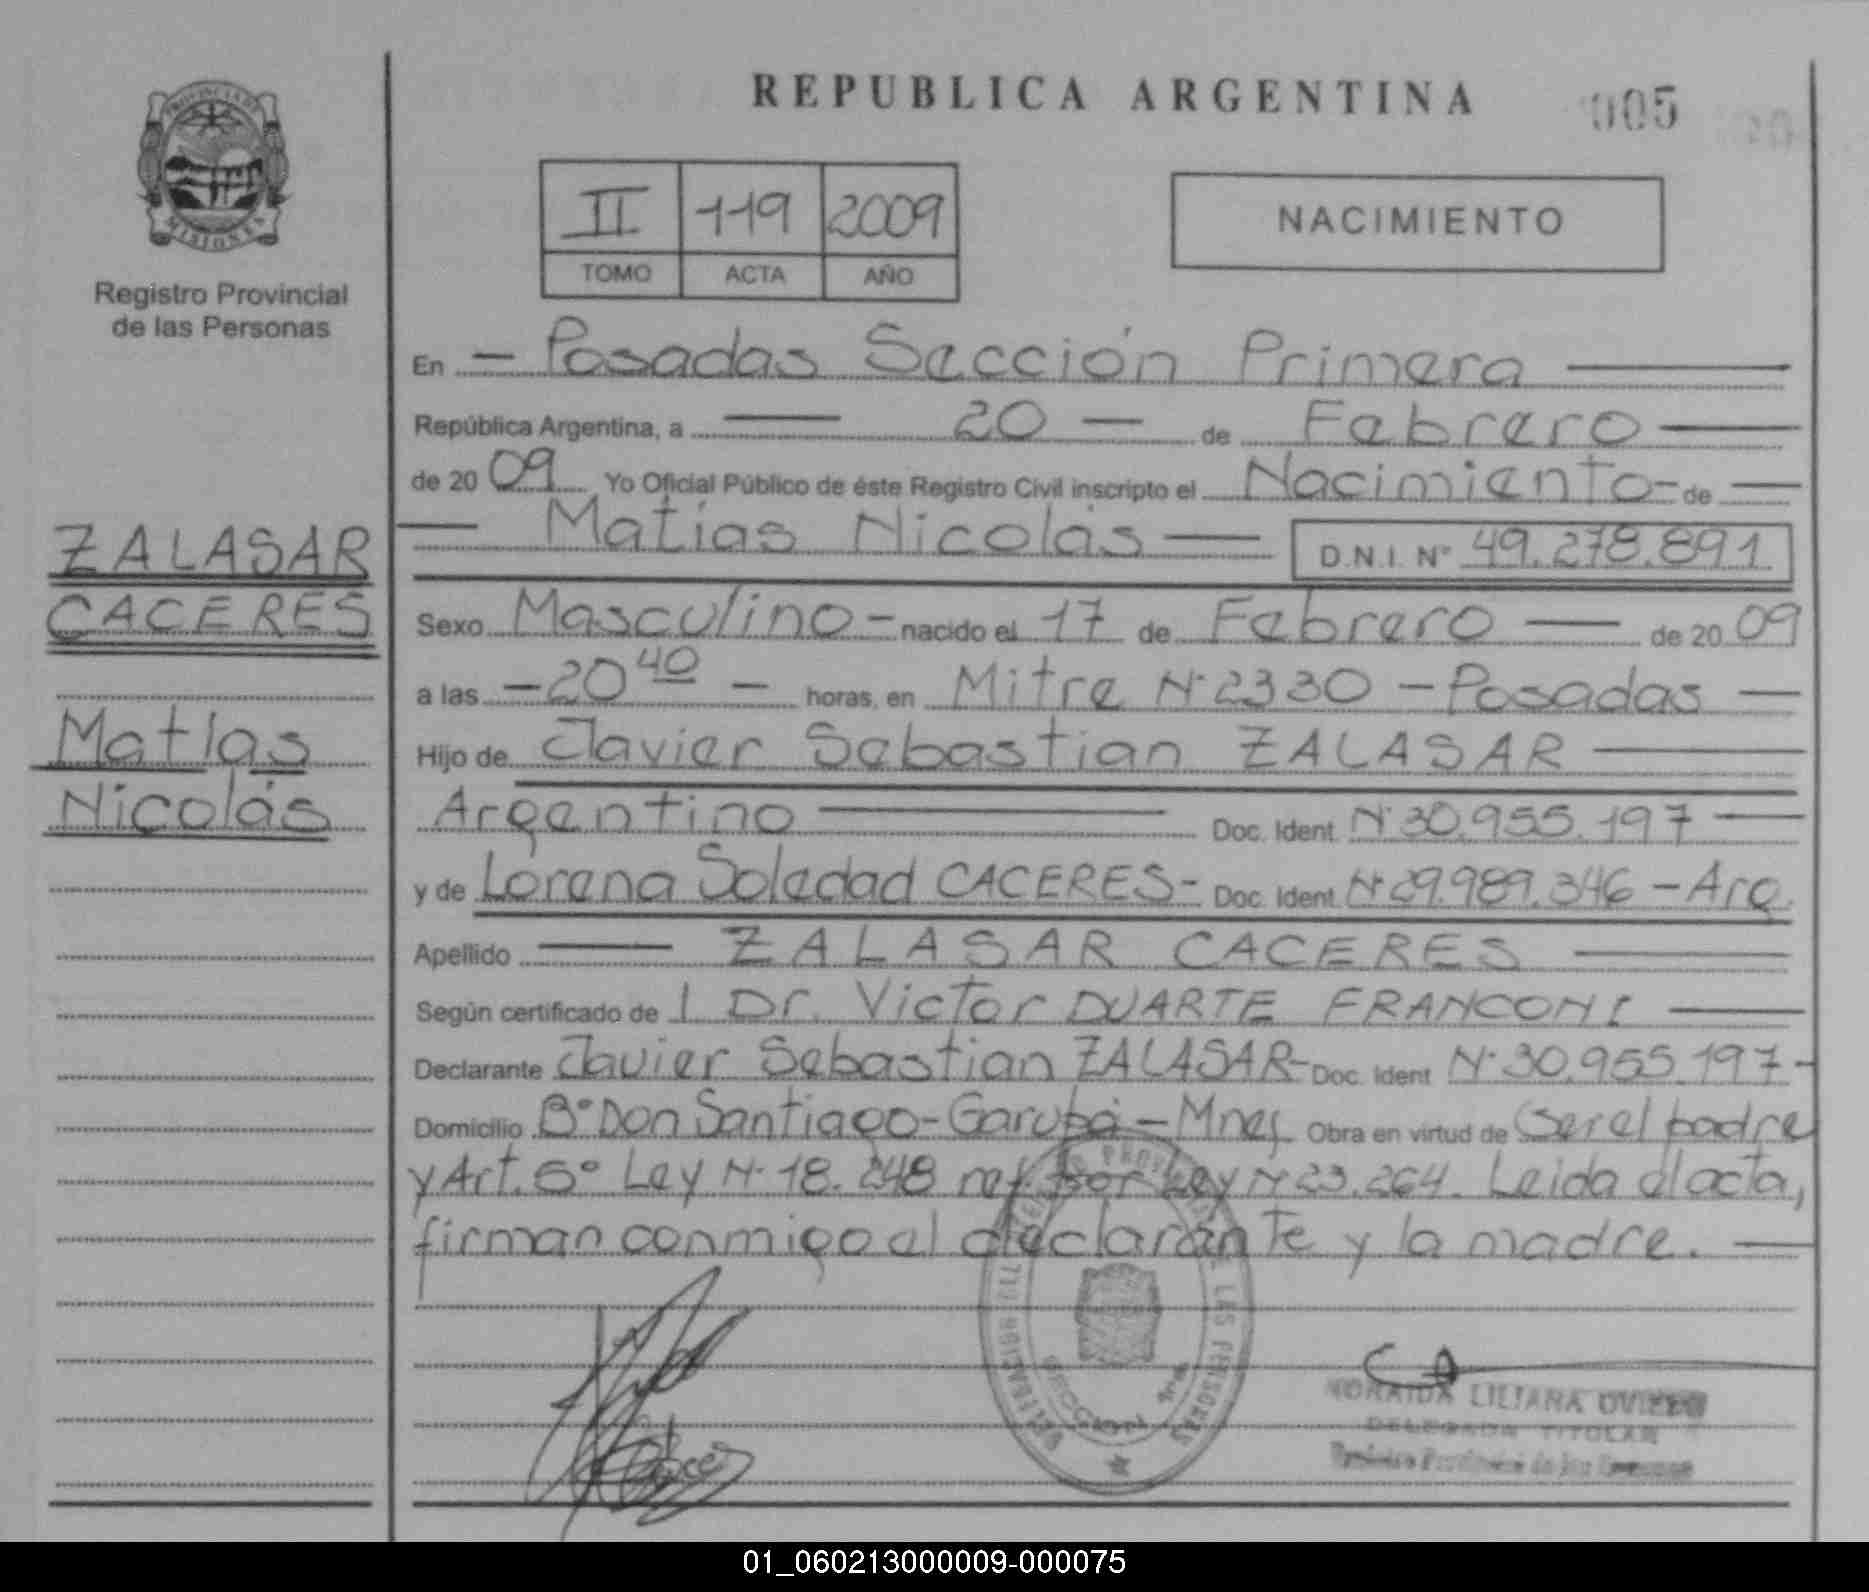 REPUBLICA ARGENTINA
005
PROVINCIA DE
MISIONES
Registro Provincial
de las Personas
II 119 2009
TOMO ACTA AÑO
NACIMIENTO
ZALASAR
CACERES
Matías
Nicolás
En - Posadas Sección Primera
República Argentina, a 20 - de Febrero
de 20 09 Yo Oficial Público de éste Registro Civil inscripto el Nacimiento - de
Matías Nicolás D.N.I. Nº 49.278.891
Sexo Masculino - nacido el 17 de Febrero de 20 09
a las - 20 40 - horas, en Mitre Nº 2330 - Posadas
Hijo de Javier Sebastian ZALASAR
Argentino Doc. Ident. Nº 30.955.197
y de Lorena Soledad CACERES - Doc. Ident. Nº 29.989.346 - Arg.
Apellido ZALASAR CACERES
Según certificado de l Dr. Victor DUARTE FRANCONI
Declarante Javier Sebastian ZALASAR - Doc. Ident Nº 30.955.197 -
Domicilio Bº Don Santiago - Garupá - Mnes Obra en virtud de Ser el padre
y Art. 5º Ley Nº 18.248 ref. por Ley Nº 23.264. Leida el acta,
firman conmigo el declarante y la madre.
LILIANA
DELEGADA TITULAR
LAS PERSONAS
SECCION 1ra
01_060213000009-000075